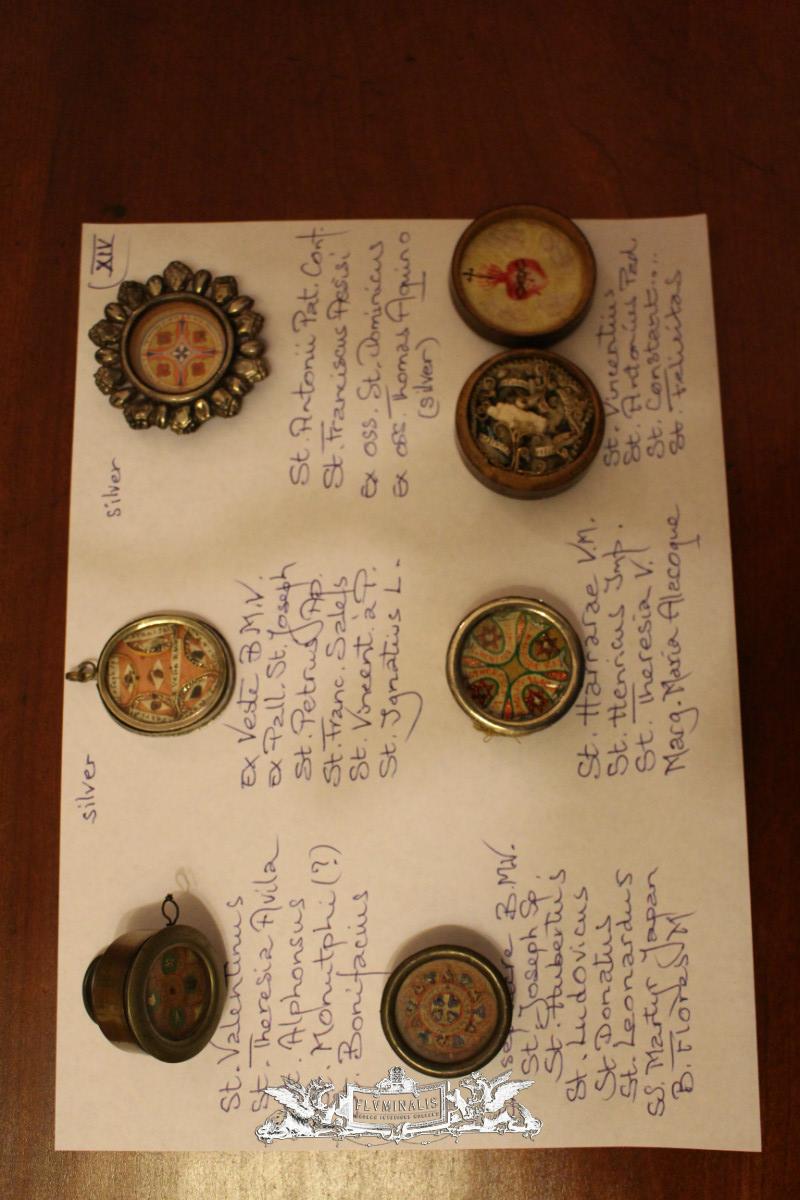 XIV
silver
silver
St. Valentinus
St. Theresia Avila
Alphonsus
Monutphi (?)
Bonifacius
Ex Veste B.M.V.
Ex Pall. St. Joseph
St. Petrus Ap.
St. Franc. Sales
St. Vincent. à P.
St. Ignatius L.
St. Antonii Pat. Conf.
St. Franciscus Assisi
Ex oss. St. Dominicus
Ex oss. Thomas Aquino
(silver)
B.M.V.
St. Joseph Sp.
St. Hubertus
St. Ludovicus
St Donatus
St. Leonardus
SS. Martyr Japan
B. Flores M
St. Barbarae V.M.
St. Henricus Imp.
St. Theresia V.
Marg. Maria Alacoque
St. Vincentius
St. Antonius Pad.
St. Constant....
St. Felicitas
FLVMINALIS